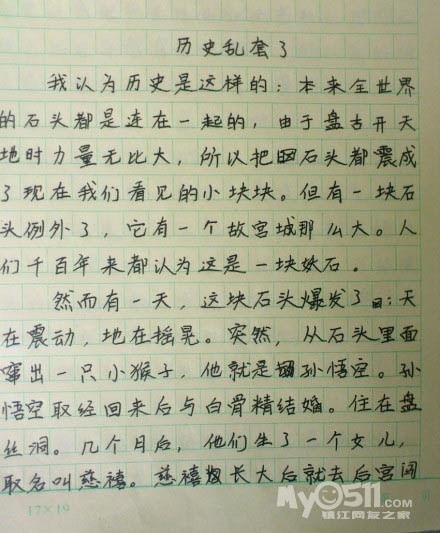 历史乱套了
我认为历史是这样的：本来全世界
的石头都是连在一起的，由于盘古开天
地时力量无比大，所以把石头都震成
了现在我们看见的小块块。但有一块石
头例外了，它有一个故宫城那么大。人
们千百年来都认为这是一块妖石。
然而有一天，这块石头爆发了：天
在震动，地在摇晃。突然，从石头里面
窜出一只小猴子，他就是孙悟空。孙
悟空取经回来后与白骨精结婚。住在盘
丝洞。几个月后，他们生了一个女儿，
取名叫慈禧。慈禧长大后就去后宫闯
17×19
My0511
镇江网友之家